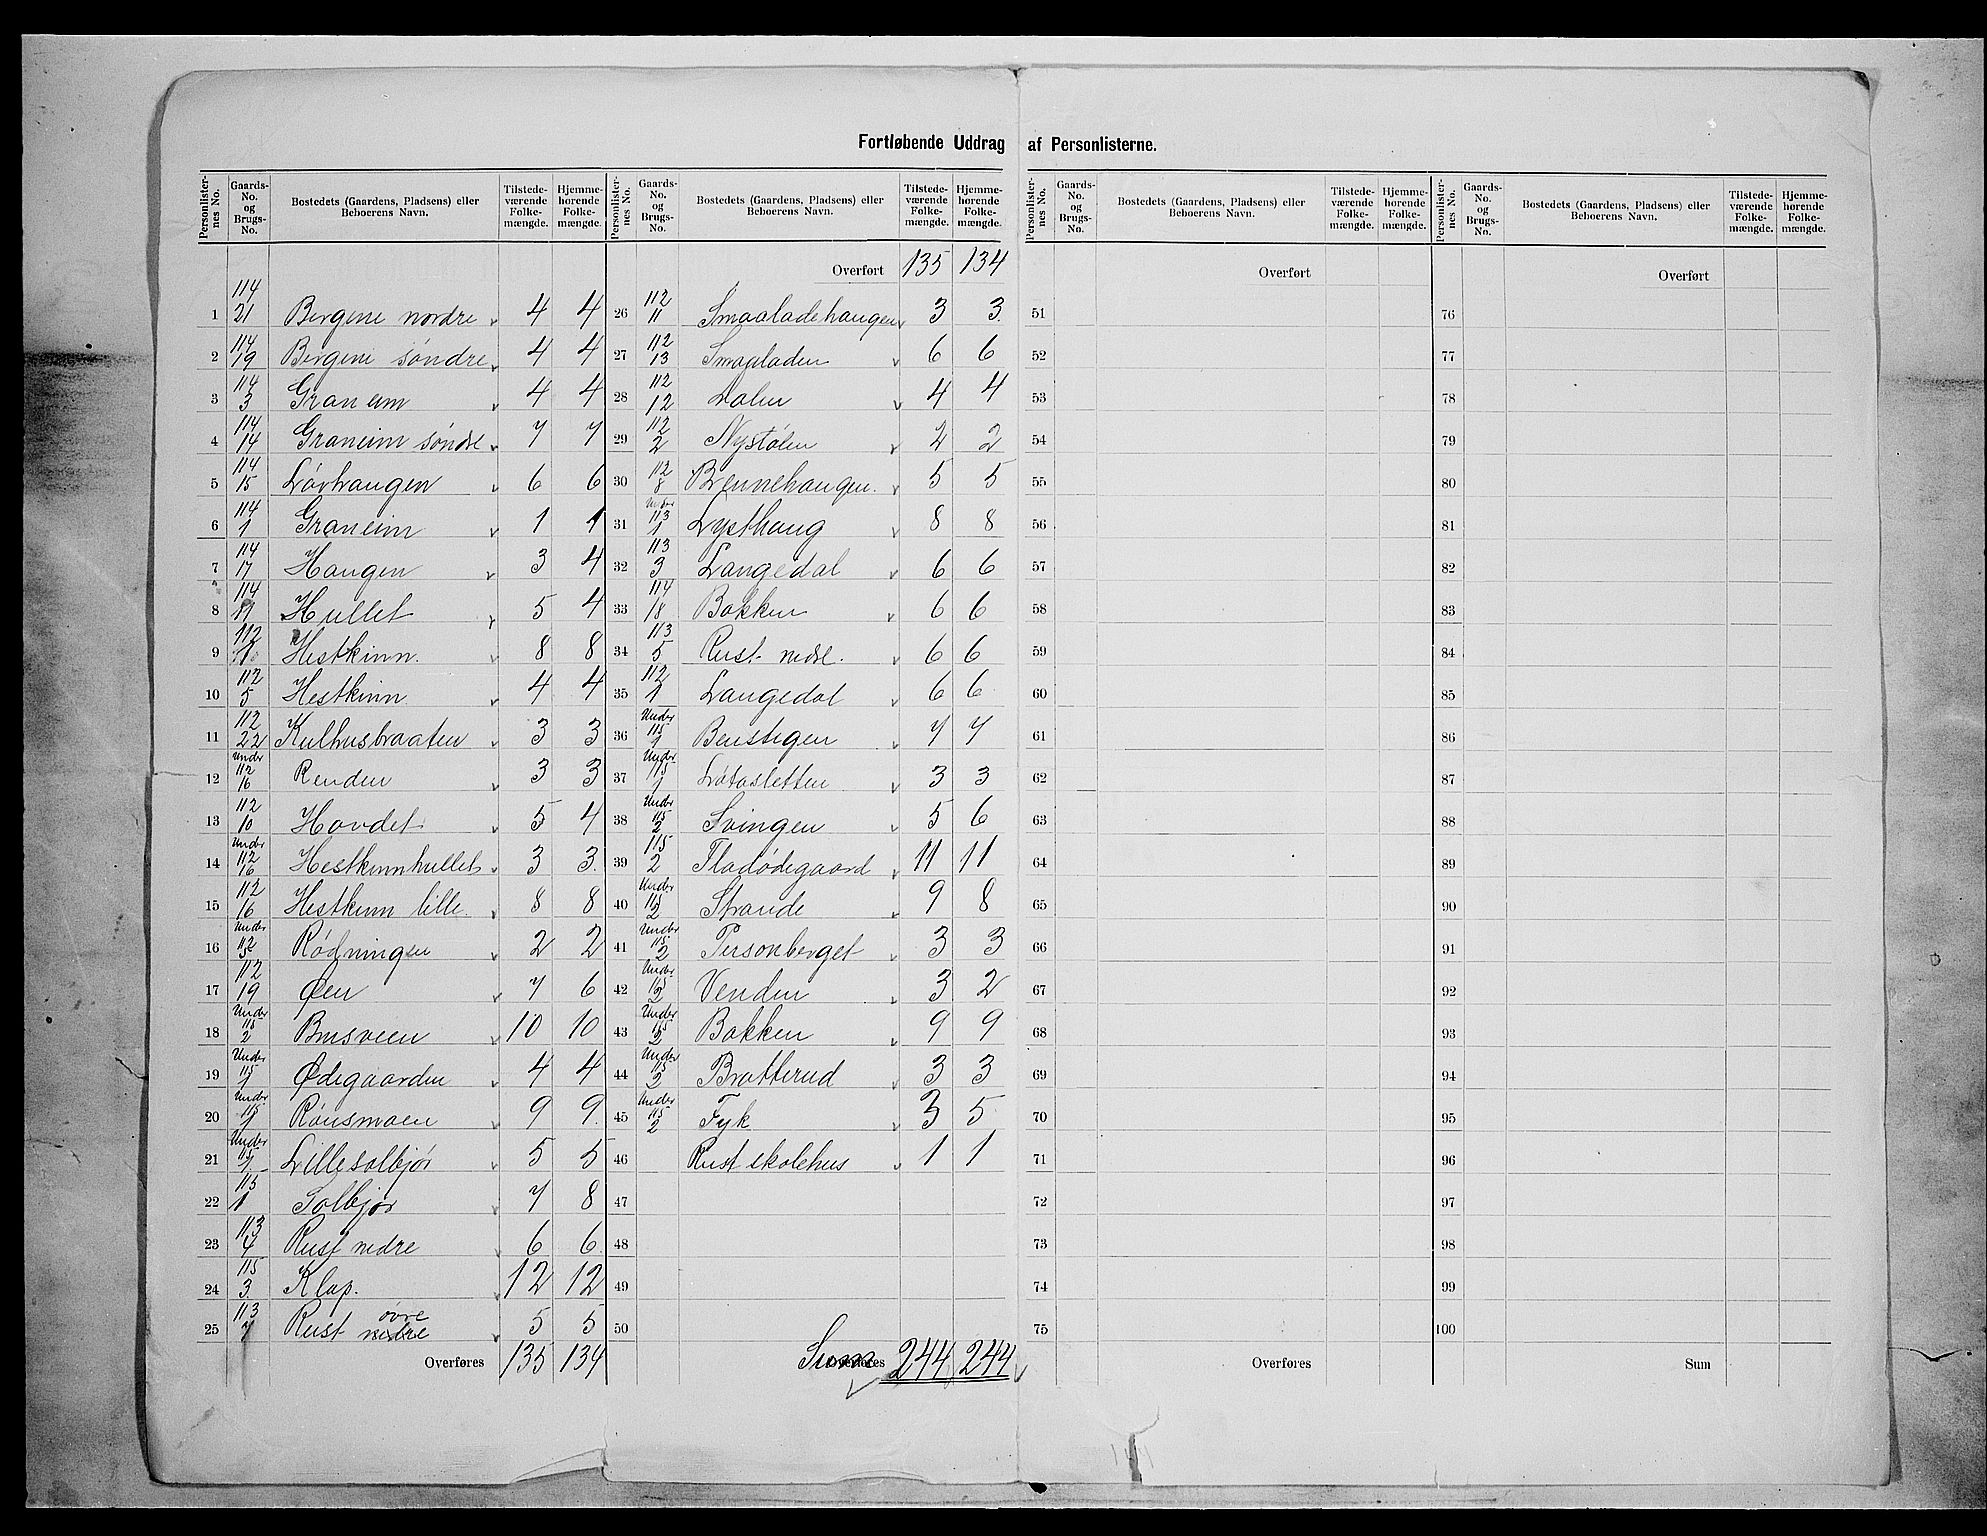 Fortløbende Uddrag af Personlisterne.
Personlister-nes No. | Gaards-No. og Brugs-No. | Bostedets (Gaardens, Pladsens) eller Beboerens Navn. | Tilstede-værende Folke-mængde. | Hjemme-hørende Folke-mængde.
1 114/21 Bergene nordre 4 4
2 114/19 Bergene søndre 4 4
3 114/3 Graneim 4 4
4 114/14 Graneim søndre 7 7
5 114/15 Løvhaugen 6 6
6 114/1 Graneim 1 1
7 114/17 Haugen 3 4
8 114 Hullet 5 4
9 112 Hestkinn. 8 8
10 112/5 Hestkinn 4 4
11 112/22 Kulhusbraaten 3 3
12 Under 112/16 Renden 3 3
13 112/10 Hovdet 5 4
14 Under 112/16 Hestkinnhullet 3 3
15 112/16 Hestkinn lille. 8 8
16 Under 112/5 Rødningen 2 2
17 112/19 Øen 7 6
18 Under 115/2 Brusveen 10 10
19 Under 115/1 Ødegaarden 4 4
20 Under 115/1 Rønsmoen 9 9
21 Under 115/1 Lillesolbjør 5 5
22 115/1 Solbjør 7 8
23 113/4 Rust nedre 6 6
24 115/3 Klop. 12 12
25 113/7 Rust øvre nedre 5 5
Overføres 135 134
Personlister-nes No. | Gaards-No. og Brugs-No. | Bostedets (Gaardens, Pladsens) eller Beboerens Navn. | Tilstede-værende Folke-mængde. | Hjemme-hørende Folke-mængde.
Overført 135 134
26 112/11 Smaaladehaugen 3 3
27 112/13 Smaaladen 6 6
28 112/12 Lolen 4 4
29 112/2 Nystølen 2 2
30 112/8 Brennehaugen. 5 5
31 Under 113/1 Lysthaug 8 8
32 113/3 Langedal 6 6
33 114/18 Bakken 6 6
34 113/5 Rust nedre. 6 6
35 112/1 Langedal 6 6
36 Under 115/1 Benstigen 7 7
37 Under 115/1 Løtasletten 3 3
38 Under 115/2 Svingen 5 6
39 115/2 Fladødegaard 11 11
40 Under 115/2 Strande 9 8
41 Under 115/2 Personberget 3 3
42 Under 115/2 Venden 3 2
43 Under 115/2 Bakken 9 9
44 Under 115/2 Bratterud 3 3
45 Under 115/2 Fyk 3 5
46 Rust skolehus 1 1
47
48
49
50
Overføres Sum 244 244
Personlister-nes No. | Gaards-No. og Brugs-No. | Bostedets (Gaardens, Pladsens) eller Beboerens Navn. | Tilstede-værende Folke-mængde. | Hjemme-hørende Folke-mængde.
Overført
51
52
53
54
55
56
57
58
59
60
61
62
63
64
65
66
67
68
69
70
71
72
73
74
75
Overføres
Personlister-nes No. | Gaards-No. og Brugs-No. | Bostedets (Gaardens, Pladsens) eller Beboerens Navn. | Tilstede-værende Folke-mængde. | Hjemme-hørende Folke-mængde.
Overført
76
77
78
79
80
81
82
83
84
85
86
87
88
89
90
91
92
93
94
95
96
97
98
99
100
Sum